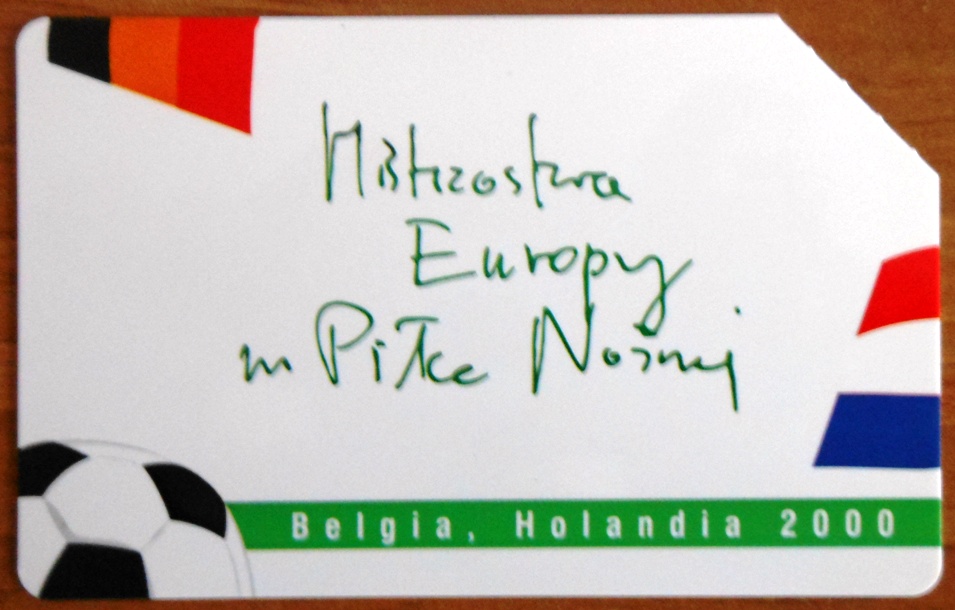 Mistrzostwa
Europy
w Piłce Nożnej
Belgia, Holandia 2000